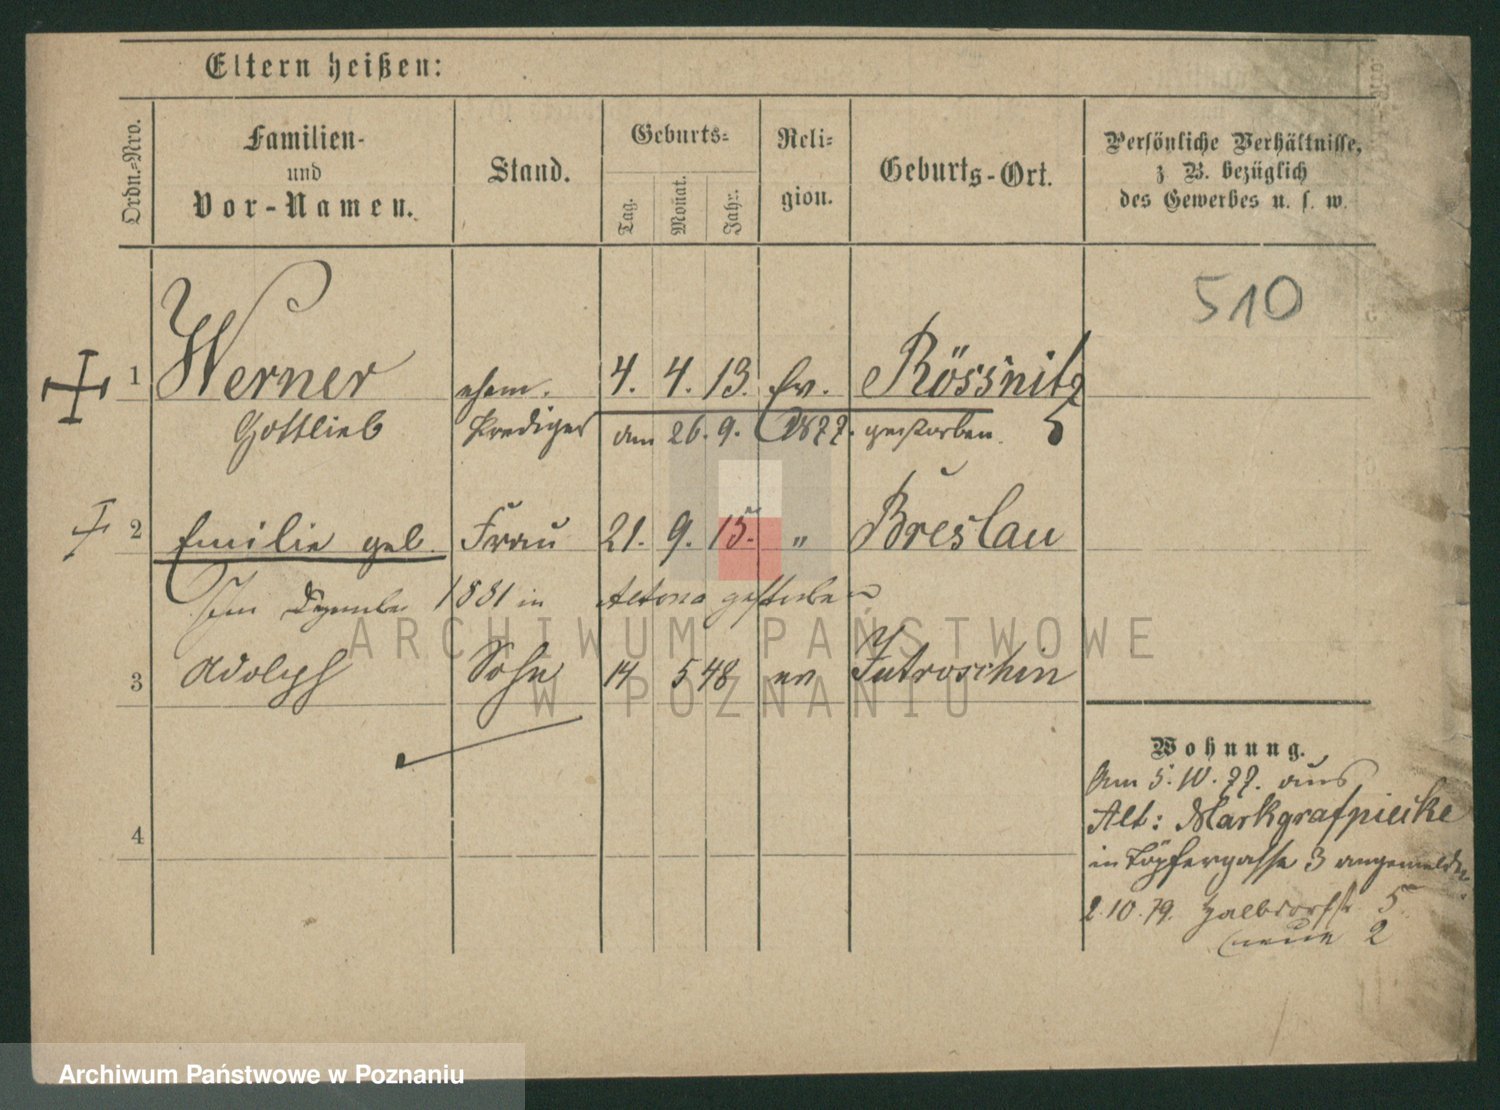 Eltern heißen:
Ordn.-Nro.
Familien-
und
Vor-Namen.
Stand.
Geburts-
Tag.
Monat.
Jahr.
Reli-
gion.
Geburts-Ort.
Persönliche Verhältnisse,
z B. bezüglich
des Gewerbes u. s. w.
510
1 Werner ehem. 4. 4. 13. Ev. Rössnitz
Gottlieb Prediger am 26. 9. 1877. gestorben. 5
2 Emilie geb. Frau 21. 9. 15. " Breslau
im Dezember 1881 in Altona gestorben
3 Adolph Sohn 14 5 48 ev Jutroschin
4
Wohnung.
Am 5. 10. 77. aus
Alt: Markgrafpieske
in Töpfergasse 3 angemeldet
2. 10. 79. Halbdorfstr 5
neue 2
ARCHIWUM PAŃSTWOWE
W POZNANIU
Archiwum Państwowe w Poznaniu